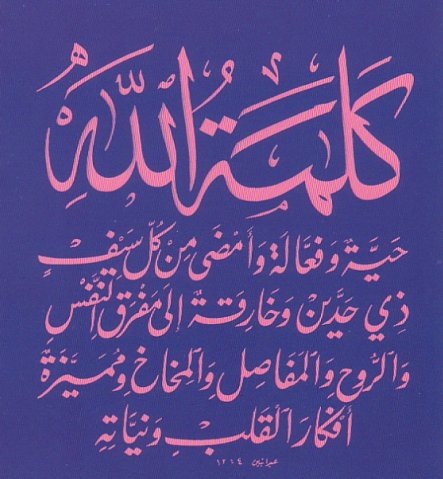 كَلِمَةُ اللهِ
حَيَّةٌ وَفَعَّالَةٌ وَأَمْضَى مِنْ كُلِّ سَيْفٍ
ذِي حَدَّيْنِ وَخَارِقَةٌ إِلَى مَفْرَقِ النَّفْسِ
وَالرُّوحِ وَالْمَفَاصِلِ وَالْمِخَاخِ وَمُمَيِّزَةٌ
أَفْكَارَ الْقَلْبِ وَنِيَّاتِهِ
عبرانيين ٤ : ١٢